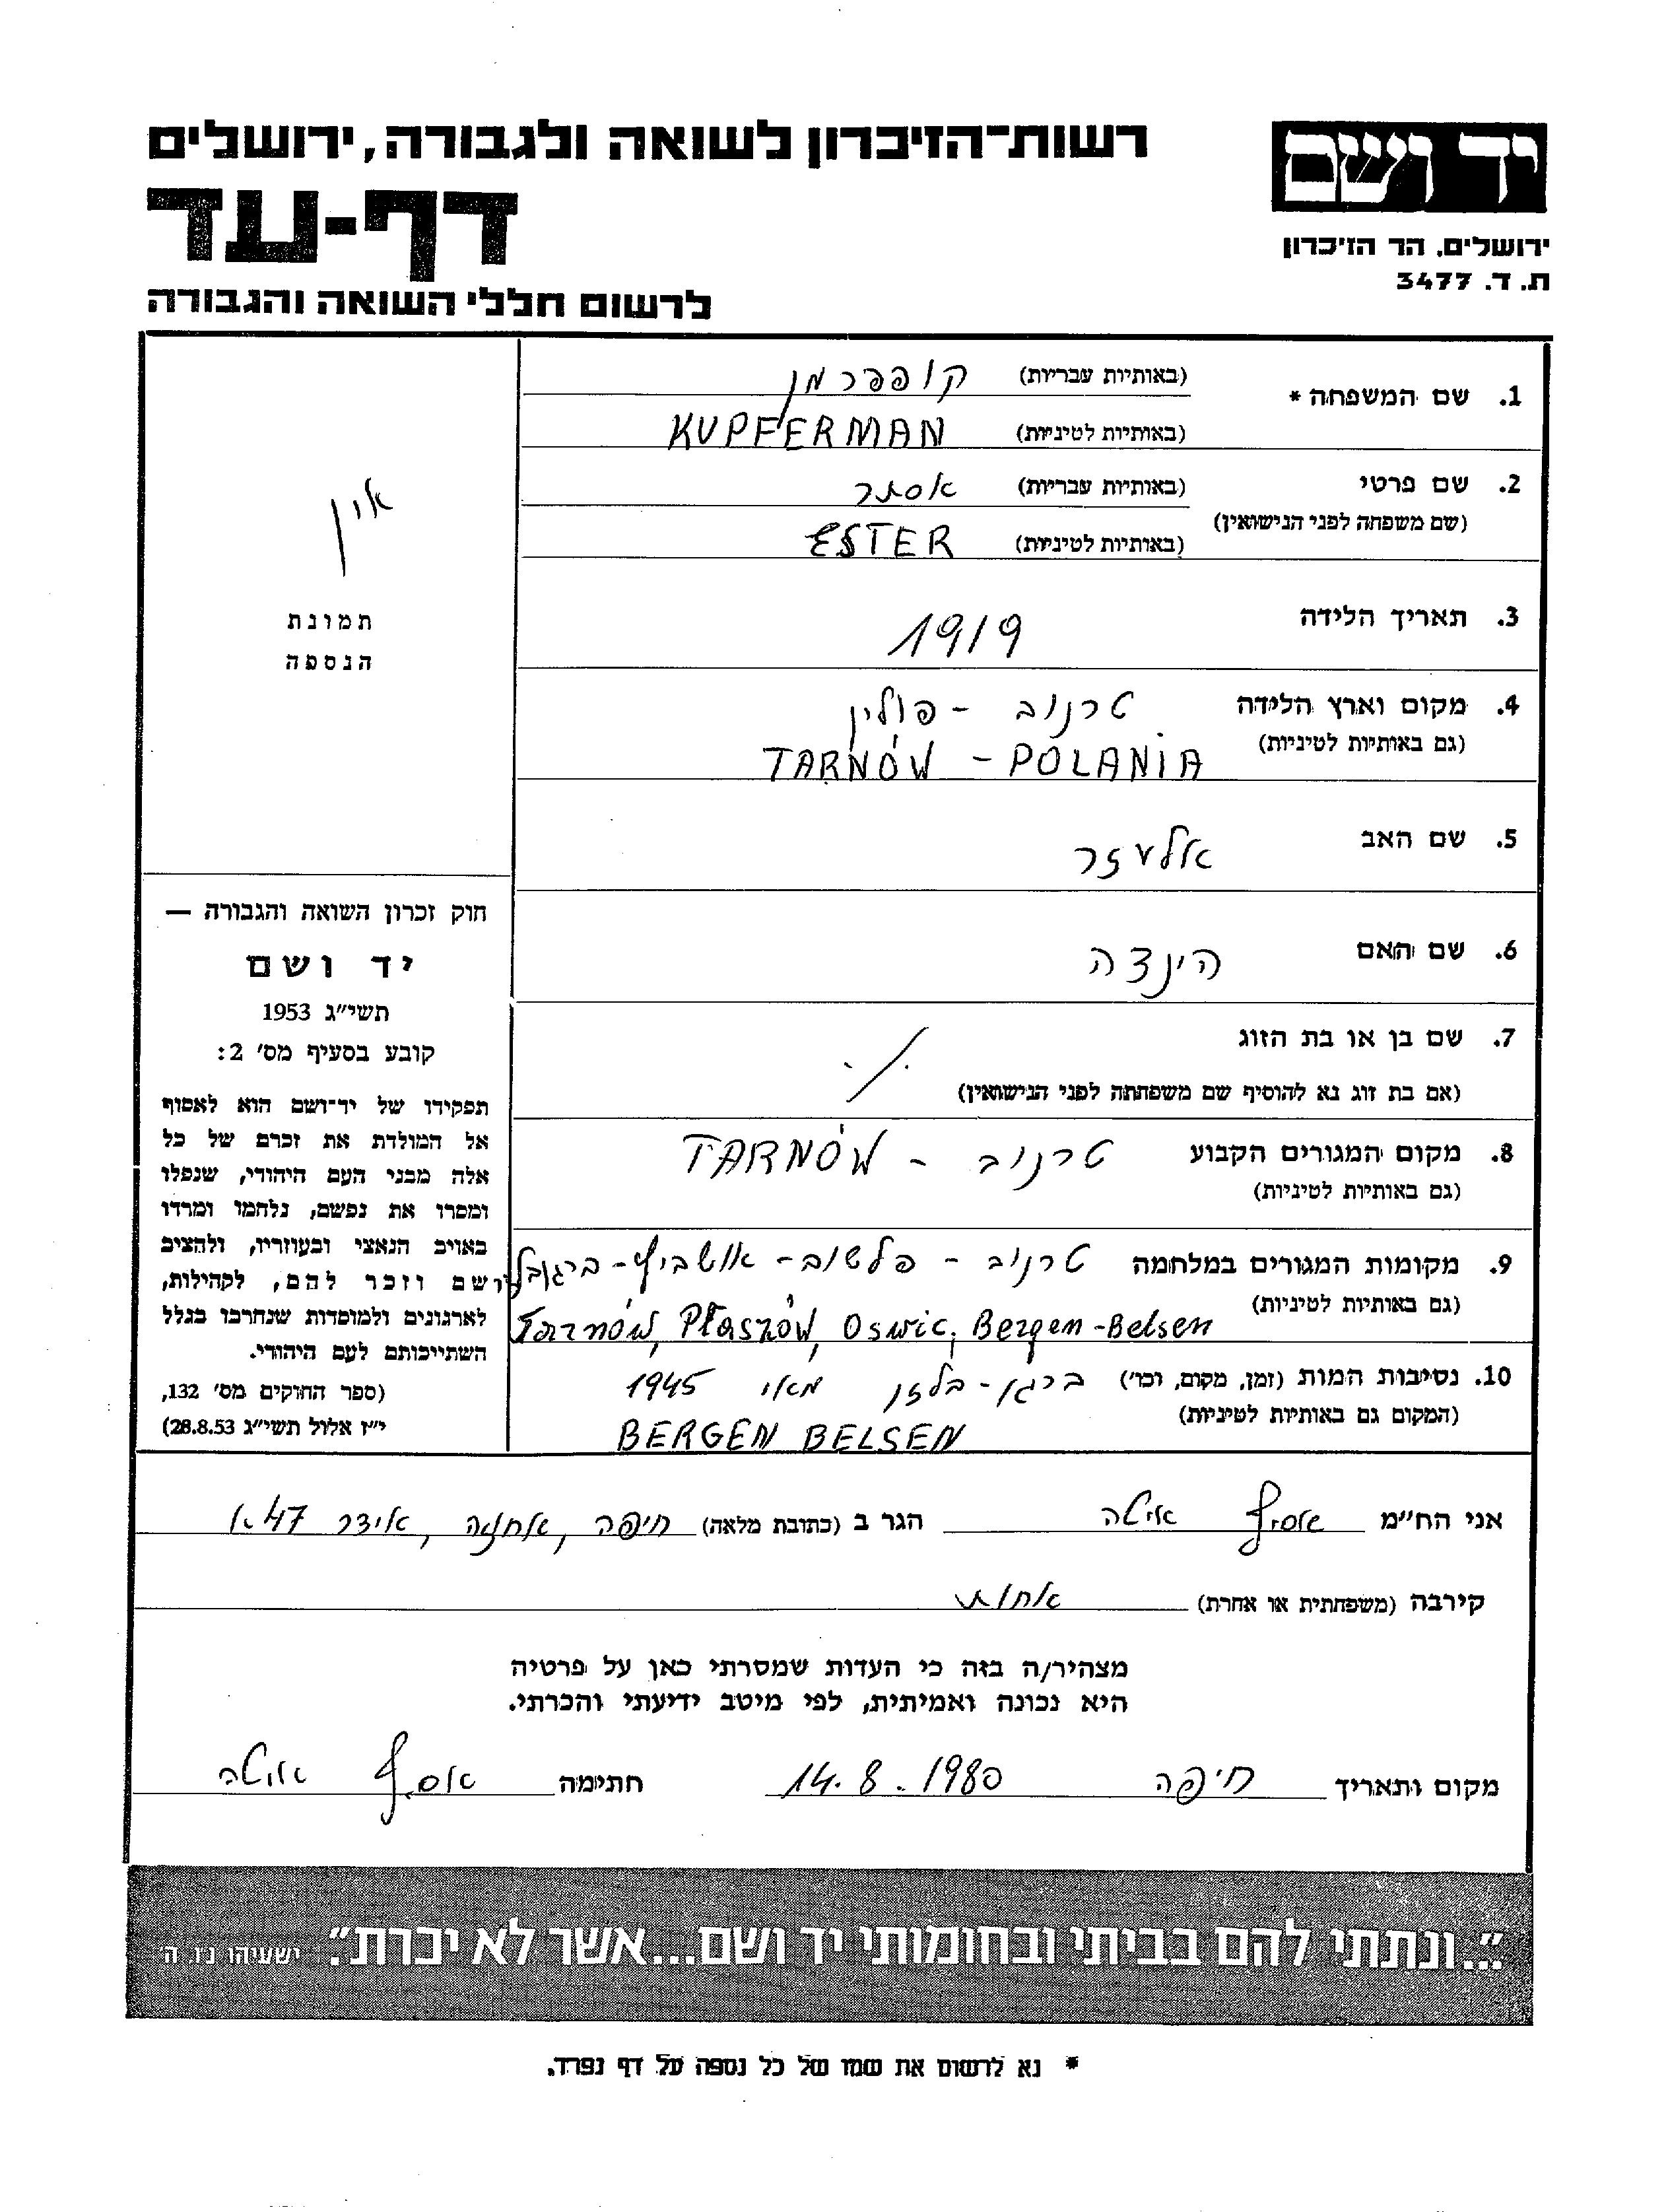 רשות־הזיכרון לשואה ולגבורה, ירושלים
דף-עד
לרשום חללי השואה והגבורה
יד ושם
ירושלים, הר הזיכרון
ת. ד. 3477
1. שם המשפחה * (באותיות עבריות) קופפרמן
(באותיות לטיניות) KUPFERMAN
2. שם פרטי (באותיות עבריות) אסתר
(שם משפחה לפני הנישואין)
(באותיות לטיניות) ESTER
3. תאריך הלידה 1919
4. מקום וארץ הלידה טרנוב - פולין
(גם באותיות לטיניות) TARNÓW - POLANIA
5. שם האב אלעזר
6. שם האם הינצה
7. שם בן או בת הזוג
(אם בת זוג נא להוסיף שם משפחתה לפני הנישואין)
8. מקום המגורים הקבוע טרנוב - TARNÓW
(גם באותיות לטיניות)
9. מקומות המגורים במלחמה טרנוב - פלשוב - אושביץ -
(גם באותיות לטיניות) Tarnów, Płaszów, Oswic, Bergen-Belsen
10. נסיבות המות (זמן, מקום, וכו') ברגן-בלזן מאי 1945
(המקום גם באותיות לטיניות) BERGEN BELSEN
אין
תמונת
הנספה
חוק זכרון השואה והגבורה —
יד ושם
תשי״ג 1953
קובע בסעיף מס' 2:
תפקידו של יד־ושם הוא לאסוף
אל המולדת את זכרם של כל
אלה מבני העם היהודי, שנפלו
ומסרו את נפשם, נלחמו ומרדו
באויב הנאצי ובעוזריו, ולהציב
שם וזכר להם, לקהילות,
לארגונים ולמוסדות שנחרבו בגלל
השתייכותם לעם היהודי.
(ספר החוקים מס' 132,
י״ז אלול תשי״ג 28.8.53)
אני הח״מ אסף איטה הגר ב (כתובת מלאה) חיפה, אחוזה, אידר 47א
קירבה (משפחתית או אחרת) אחות
מצהיר/ה בזה כי העדות שמסרתי כאן על פרטיה
היא נכונה ואמיתית, לפי מיטב ידיעתי והכרתי.
מקום ותאריך חיפה 14.8.1980 חתימה אסף איטה
"...ונתתי להם בביתי ובחומותי יד ושם...אשר לא יכרת". ישעיהו נ״ו, ה'
* נא לרשום את שמו של כל נספה על דף נפרד.